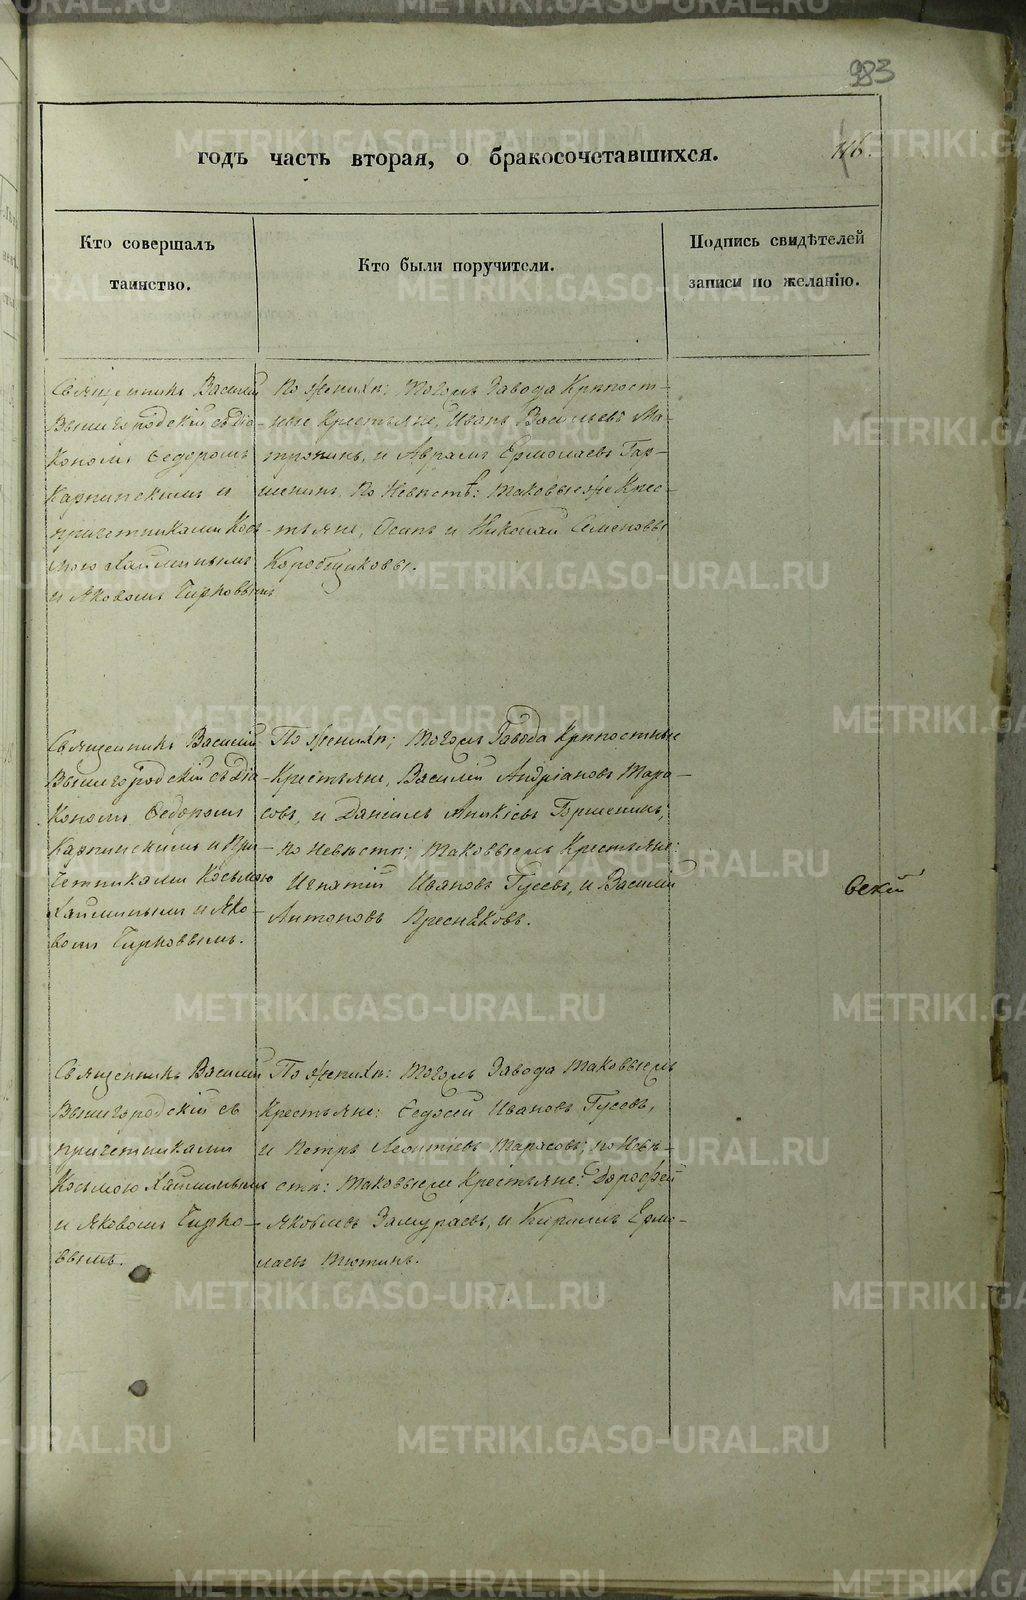 983
годъ часть вторая, о бракосочетавшихся.
116.
Кто совершалъ
таинство.
Кто были поручители.
Подпись свидѣтелей
записи по желанію.
Священникъ Василій
Вышегородскій съ Діа-
кономъ Ѳедоромъ
Карпинскимъ и
причетниками Кось-
мою Хаймиными
и Яковомъ Чирковымъ
По женихѣ: тогожъ Завода Крѣпост-
ные Крестьяне, Иванъ Васильевъ Ма-
тронинъ, и Аврамъ Ермолаевъ Гар-
шенинъ, По Невѣстѣ: таковыеже Крес-
тьяне, Осипъ и Николай Семеновы
Коробщиковы.
Священникъ Василій
Вышегородскій съ Діа-
кономъ Ѳедоромъ
Карпинскимъ и При-
четниками Косьмою
Хайминымъ и Яко-
вомъ Чирковымъ.
По женихѣ; тогожъ Завода Крѣпостные
Крестьяне, Василій Андріановъ Тара-
совъ, и Данилъ Аникіевъ Горшенинъ;
по невѣстѣ; таковыежъ Крестьяне:
Игнатій Ивановъ Гусевъ, и Василій
Антоновъ Пресняковъ.
Векій
Священникъ Василій
Вышегородскій съ
причетниками
Косьмою Хайминымъ
и Яковомъ Чирко-
вымъ.
По женихѣ: тогожъ Завода таковыежъ
Крестьяне: Ѳедосей Ивановъ Гусевъ,
и Петръ Леонтіевъ Тарасовъ; по Невѣ-
стѣ: таковыежъ Крестьяне: Дорофей
Яковлевъ Замураевъ, и Кирилъ Ермо-
лаевъ Тютинъ.
METRIKI.GASO-URAL.RU